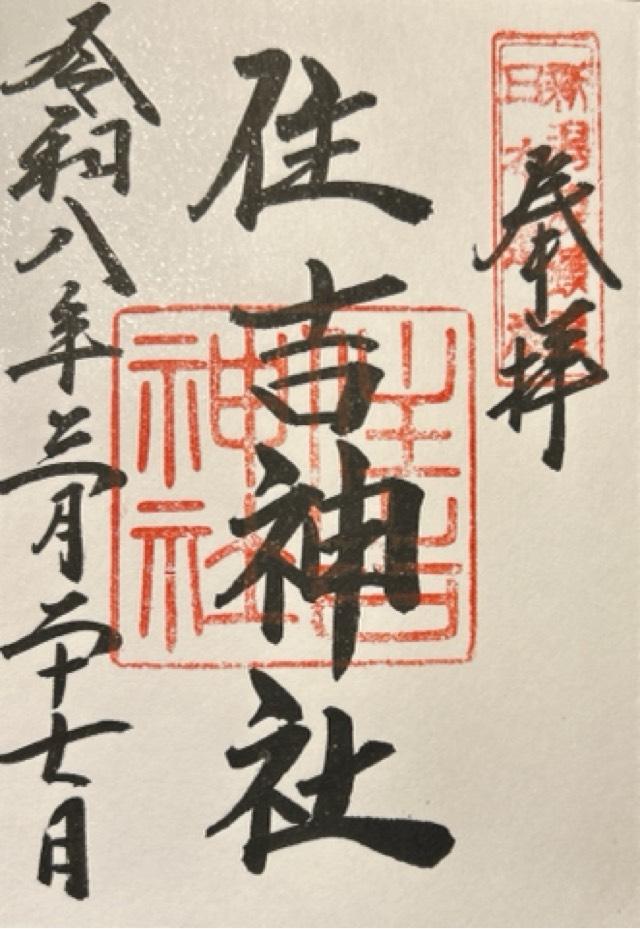 奉拝
住吉神社
令和八年三月二十七日
住吉
神社